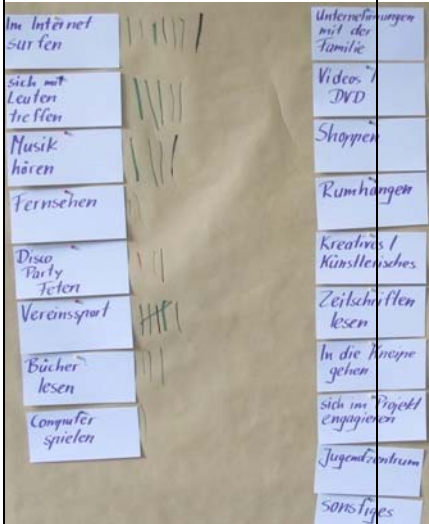 Im Internet
surfen
sich mit
Leuten
treffen
Musik
hören
Fernsehen
Disco
Party
Feten
Vereinssport
Bücher
lesen
Computer
spielen
Unternehmungen
mit der
Familie
Videos /
DVD
Shoppen
Rumhängen
Kreatives /
Künstlerisches
Zeitschriften
lesen
In die Kneipe
gehen
sich im Projekt
engagieren
Jugendzentrum
Sonstiges